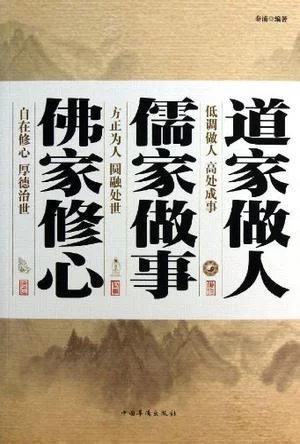 秦浦◎编著
道家做人
低调做人 高处成事
儒家做事
方正为人 圆融处世
佛家修心
自在修心 厚德治世
中国华侨出版社